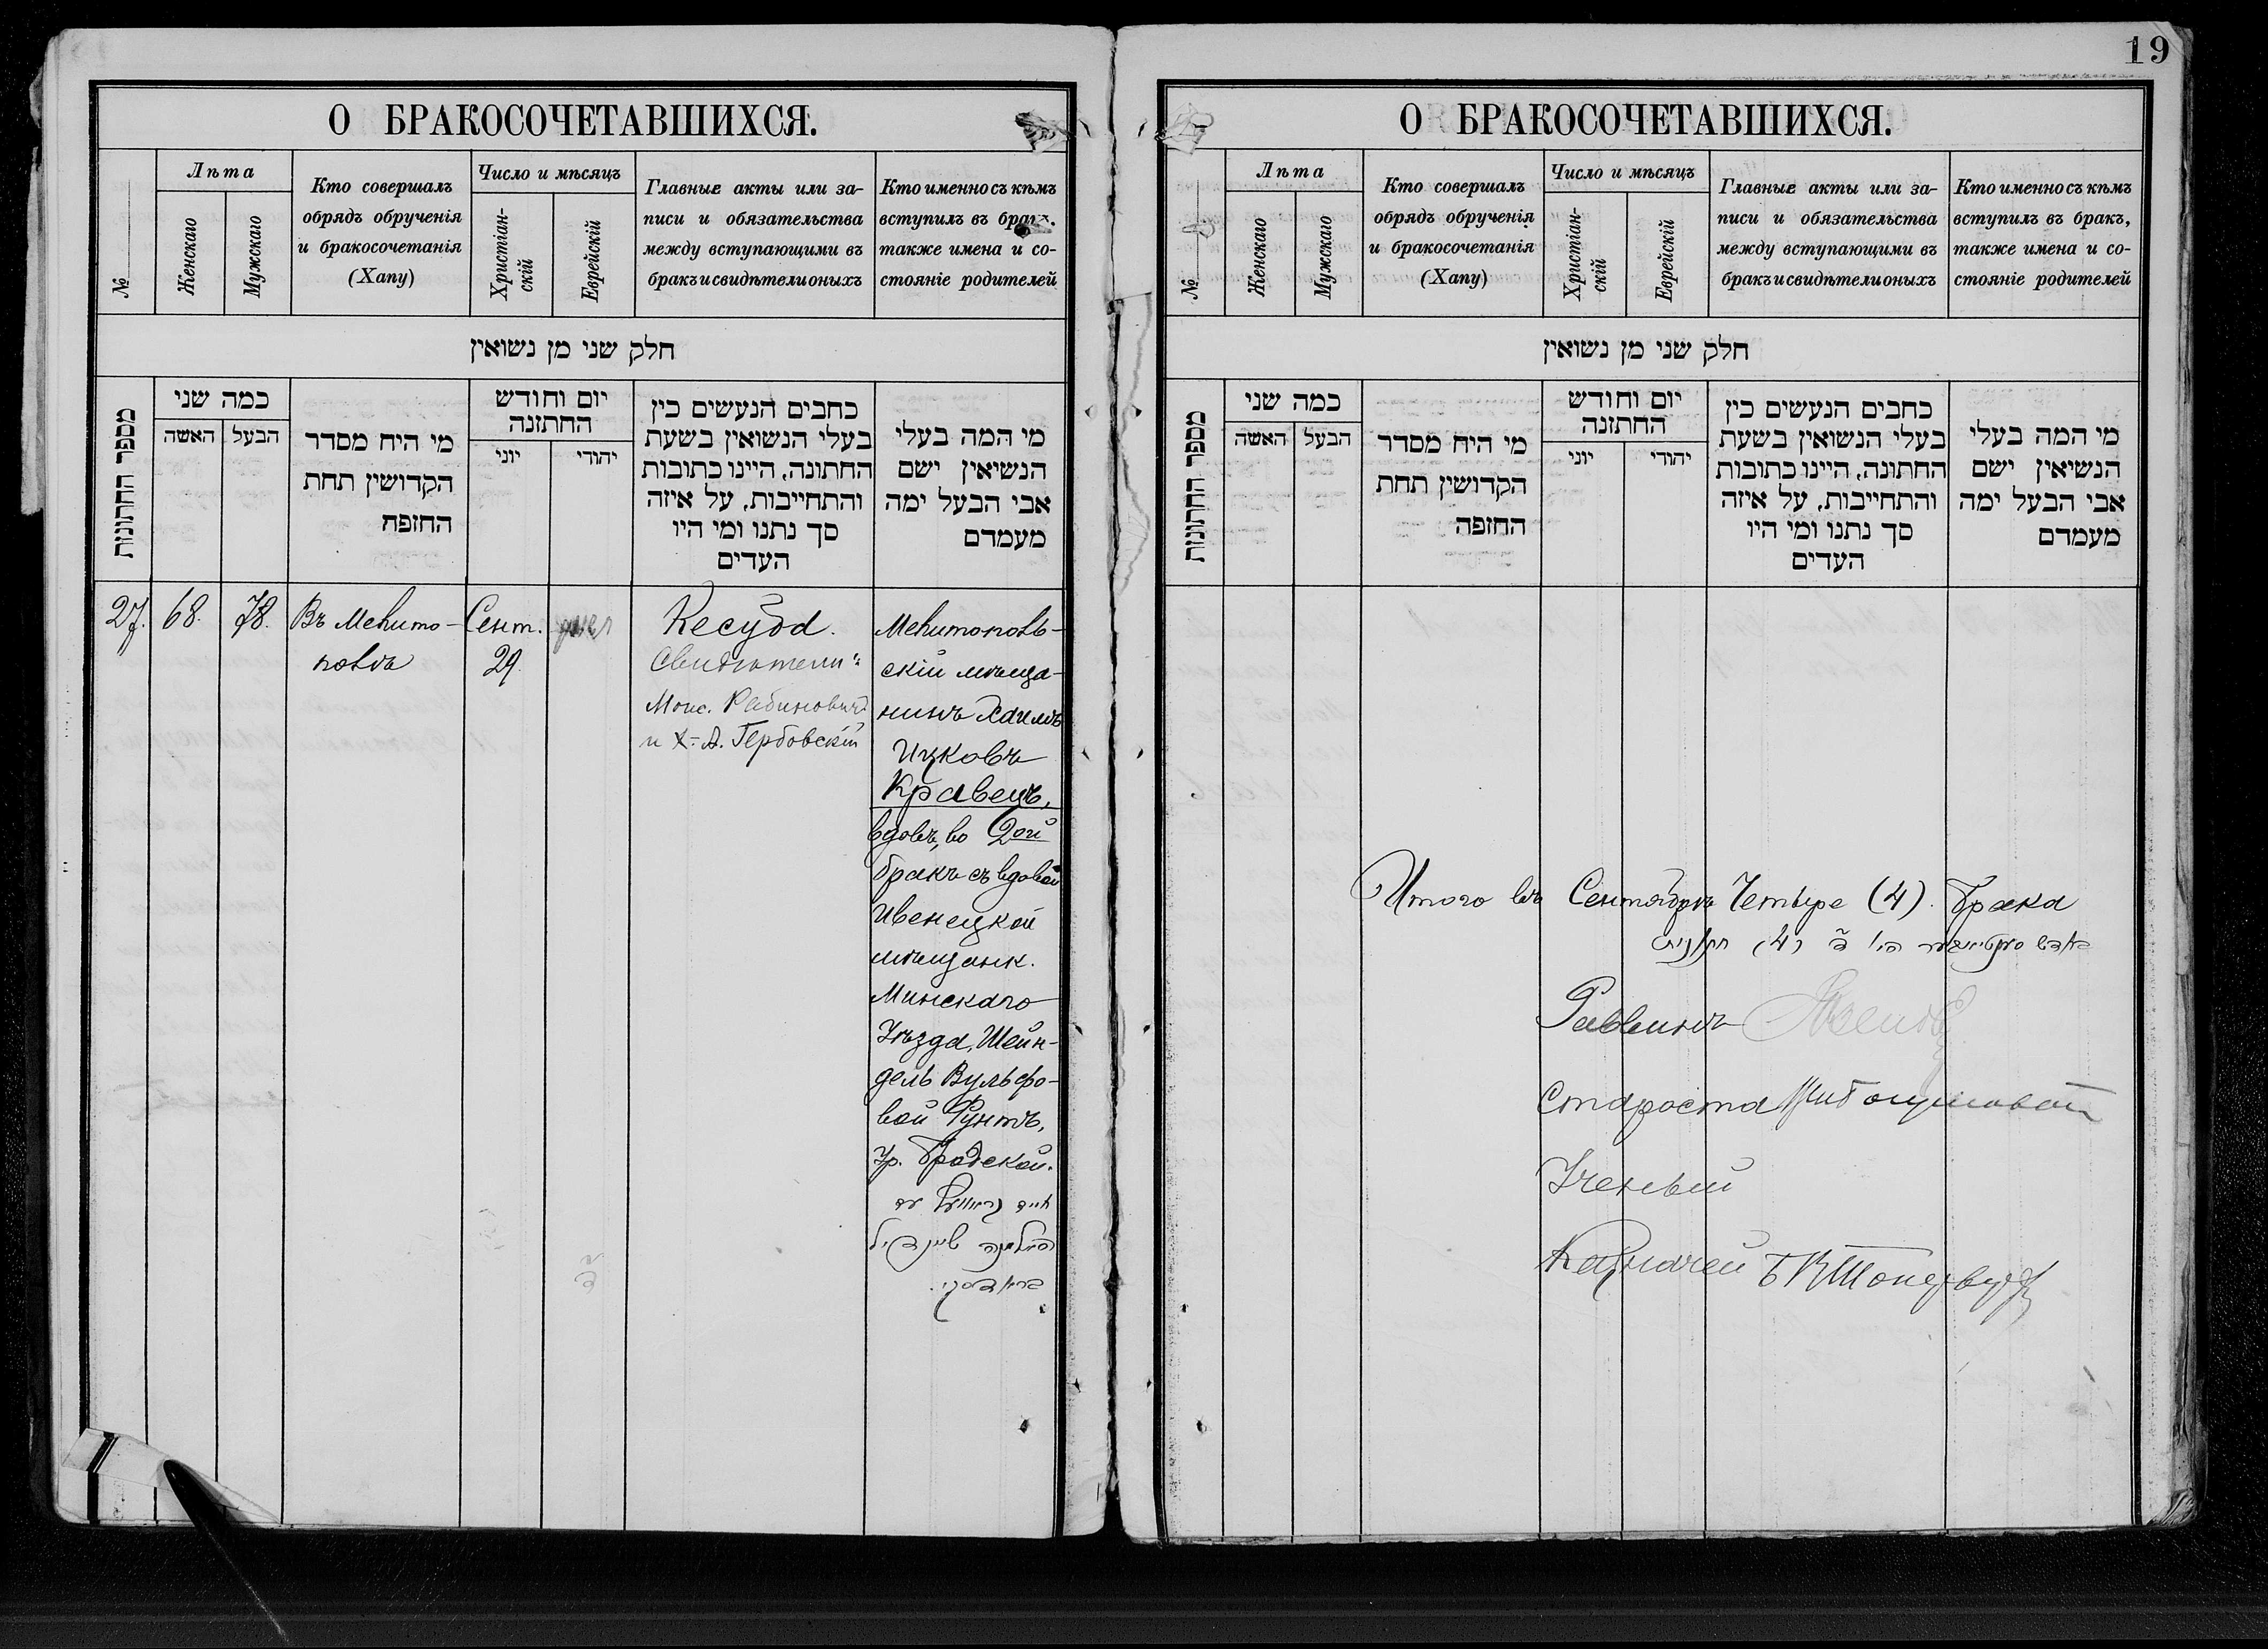 19
О БРАКОСОЧЕТАВШИХСЯ.
№
Лѣта
Женскаго
Мужскаго
Кто совершалъ
обрядъ обрученія
и бракосочетанія
(Хапу)
Число и мѣсяцъ
Христіан-
скій
Еврейскій
Главные акты или за-
писи и обязательства
между вступающими въ
бракъ и свидѣтели оныхъ
Кто именно съ кѣмъ
вступилъ въ бракъ,
также имена и со-
стояніе родителей
חלק שני מן נשואין
מספר החתונות
כמה שני
האשה
הבעל
מי היח מסדר
הקדושין תחת
החזפח
יום וחודש
החתזנה
יוני
יהודי
כחבים הנעשים כין
בעלי הנשואין בשעת
החתונה, היינו כתובות
והתחייבות, על איזה
סך נתנו ומי היו
העדים
מי המה בעלי
הנשיאין ישם
אבי הבעל ימה
מעמדם
27.
68.
78.
Въ Мелито-
полѣ
Сент.
29
Кесуба.
Свидѣтели:
Моис. Рабиновичъ
и Х.-А. Гербовскій
Мелитополь-
скій мѣща-
нинъ Хаимъ
Ицковъ
Кравецъ,
вдовъ, во 2ой
бракъ съ вдовой
Ивенецкой
мѣщанк.
Минскаго
Уѣзда, Шейн-
дель Вульфо-
вой Рунтъ,
ур. Бродской.
О БРАКОСОЧЕТАВШИХСЯ.
№
Лѣта
Женскаго
Мужскаго
Кто совершалъ
обрядъ обрученія
и бракосочетанія
(Хапу)
Число и мѣсяцъ
Христіан-
скій
Еврейскій
Главные акты или за-
писи и обязательства
между вступающими въ
бракъ и свидѣтели оныхъ
Кто именно съ кѣмъ
вступилъ въ бракъ,
также имена и со-
стояніе родителей
חלק שני מן נשואין
מספר החתונות
כמה שני
האשה
הבעל
מי היח מסדר
הקדושין תחת
החזפה
יום וחודש
החתזנה
יוני
יהודי
כחבים הנעשים כין
בעלי הנשואין בשעת
החתונה, היינו כתובות
והתחייבות, על איזה
סך נתנו ומי היו
העדים
מי המה בעלי
הנשיאין ישם
אבי הבעל ימה
מעמדם
Итого въ Сентябрѣ Четыре (4) брака
Раввинъ
Староста
Ученый
Казначей